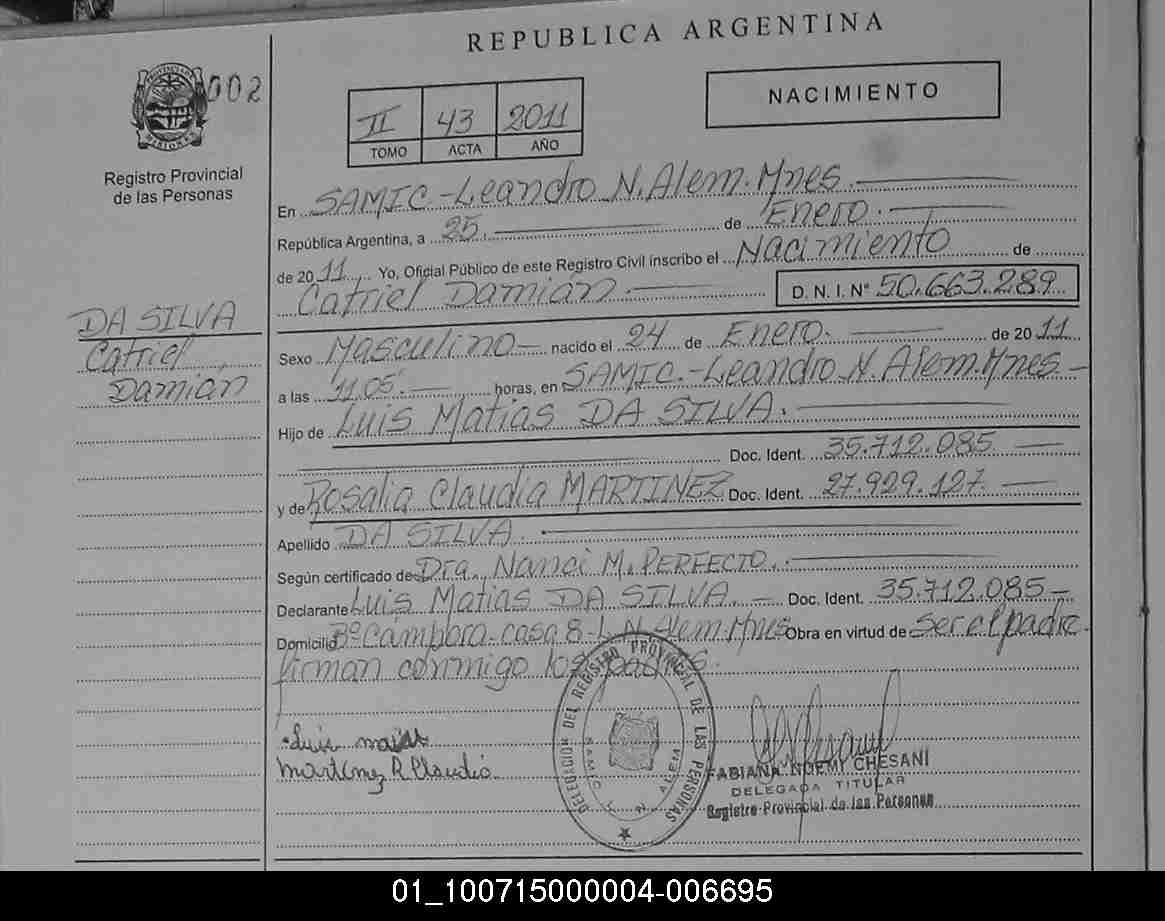 REPUBLICA ARGENTINA
002
PROVINCIA DE MISIONES
Registro Provincial
de las Personas
II 43 2011
TOMO ACTA AÑO
NACIMIENTO
En SAMIC-Leandro N. Alem. Mnes
República Argentina, a 25 de Enero
de 2011 Yo, Oficial Público de este Registro Civil inscribo el Nacimiento de
Catriel Damián D. N. I. Nº 50.663.289
DA SILVA
Catriel
Damián
Sexo Masculino nacido el 24 de Enero. de 2011
a las 11,05. horas, en SAMIC.-Leandro N. Alem. Mnes
Hijo de Luis Matías DA SILVA.
Doc. Ident. 35.712.085
y de Rosalia Claudia MARTINEZ Doc. Ident. 27.929.127
Apellido DA SILVA
Según certificado de Dra. Nanci M. PERFECTO.
Declarante Luis Matías DA SILVA. Doc. Ident. 35.712.085
Domicilio Bº Cámpora. casa 8-L.N. Alem-Mnes Obra en virtud de Ser el padre.
firman conmigo los padres.
Luis
Martinez R Claudia
DELEGACION DEL REGISTRO PROVINCIAL DE LAS PERSONAS
SAMIC L. N. ALEM
FABIANA NOEMI CHESANI
DELEGADA TITULAR
Registro Provincial de las Personas
01_100715000004-006695